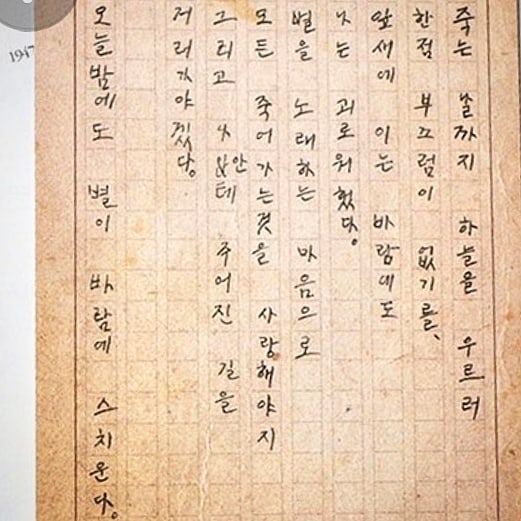 죽는 날까지 하늘을 우르러
한점 부끄럼이 없기를、
잎새에 이는 바람에도
나는 괴로워했다。
별을 노래하는 마음으로
모든 죽어가는것을 사랑해야지
그리고 나안테 주어진 길을
거러가야겠다。
오늘밤에도 별이 바람에 스치운다。